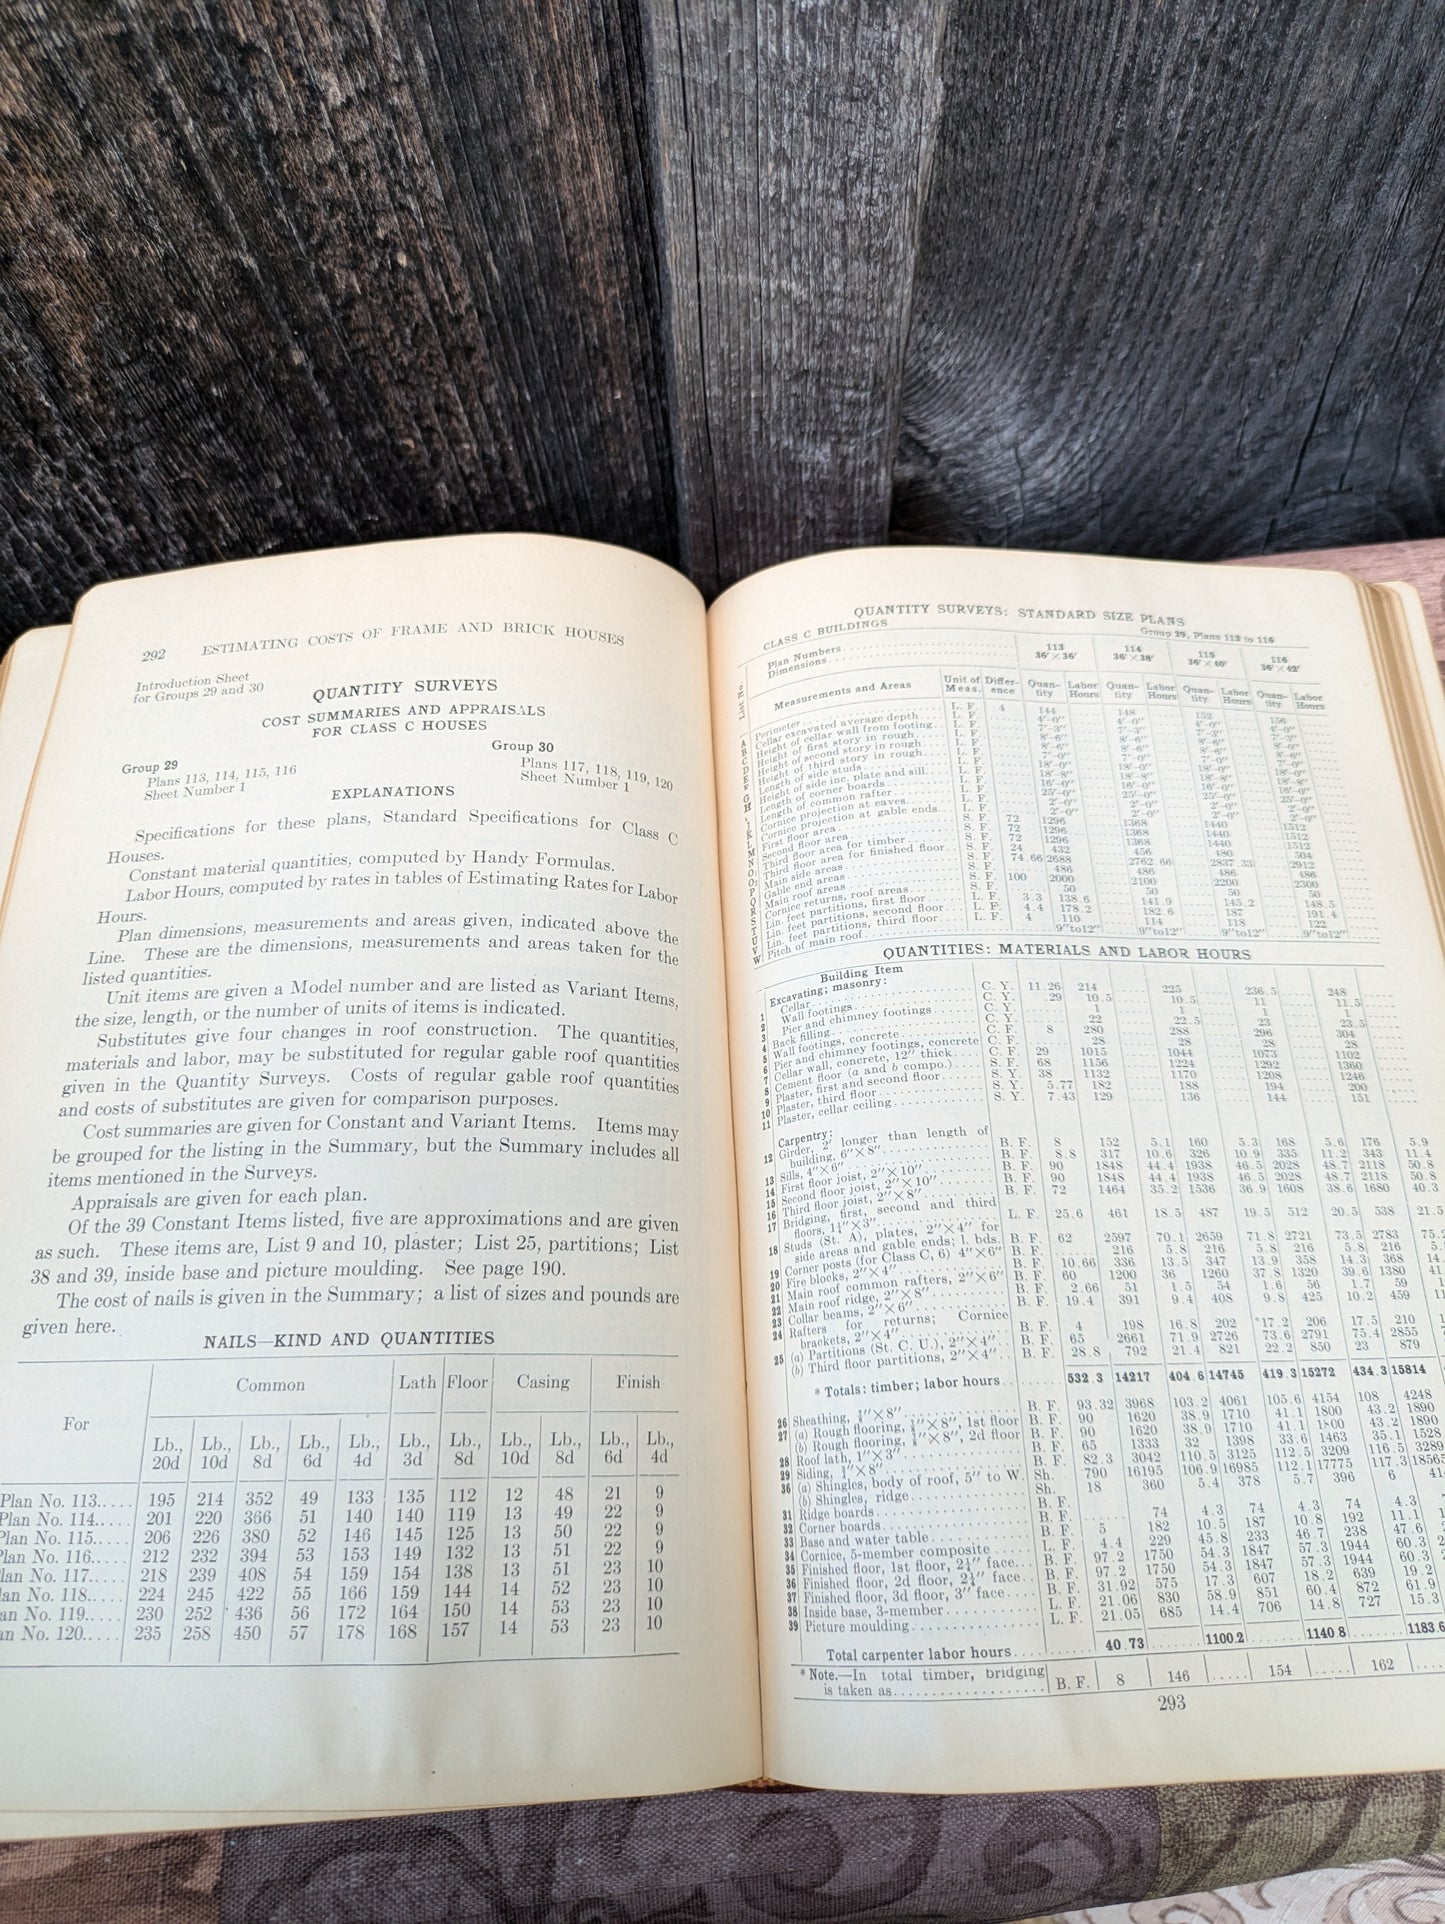 292 ESTIMATING COSTS OF FRAME AND BRICK HOUSES
Introduction Sheet
for Groups 29 and 30
QUANTITY SURVEYS
COST SUMMARIES AND APPRAISALS
FOR CLASS C HOUSES
Group 29
Plans 113, 114, 115, 116
Sheet Number 1
Group 30
Plans 117, 118, 119, 120
Sheet Number 1
EXPLANATIONS
Specifications for these plans, Standard Specifications for Class C
Houses.
Constant material quantities, computed by Handy Formulas.
Labor Hours, computed by rates in tables of Estimating Rates for Labor
Hours.
Plan dimensions, measurements and areas given, indicated above the
Line. These are the dimensions, measurements and areas taken for the
listed quantities.
Unit items are given a Model number and are listed as Variant Items,
the size, length, or the number of units of items is indicated.
Substitutes give four changes in roof construction. The quantities,
materials and labor, may be substituted for regular gable roof quantities
given in the Quantity Surveys. Costs of regular gable roof quantities
and costs of substitutes are given for comparison purposes.
Cost summaries are given for Constant and Variant Items. Items may
be grouped for the listing in the Summary, but the Summary includes all
items mentioned in the Surveys.
Appraisals are given for each plan.
Of the 39 Constant Items listed, five are approximations and are given
as such. These items are, List 9 and 10, plaster; List 25, partitions; List
38 and 39, inside base and picture moulding. See page 190.
The cost of nails is given in the Summary; a list of sizes and pounds are
given here.
NAILS—KIND AND QUANTITIES
For Common Lath Floor Casing Finish
Lb., 20d Lb., 10d Lb., 8d Lb., 6d Lb., 4d Lb., 3d Lb., 8d Lb., 10d Lb., 8d Lb., 6d Lb., 4d
Plan No. 113..... 195 214 352 49 133 135 112 12 48 21 9
Plan No. 114..... 201 220 366 51 140 140 119 13 49 22 9
Plan No. 115..... 206 226 380 52 146 145 125 13 50 22 9
lan No. 116..... 212 232 394 53 153 149 132 13 51 22 9
lan No. 117..... 218 239 408 54 159 154 138 13 51 23 10
an No. 118..... 224 245 422 55 166 159 144 14 52 23 10
an No. 119..... 230 252 436 56 172 164 150 14 53 23 10
n No. 120..... 235 258 450 57 178 168 157 14 53 23 10
QUANTITY SURVEYS: STANDARD SIZE PLANS
CLASS C BUILDINGS Group 29, Plans 113 to 116
List No.
Plan Numbers 113 114 115 116
Dimensions 36′×36′ 36′×38′ 36′×40′ 36′×42′
Measurements and Areas Unit of Meas. Difference Quantity Labor Hours Quantity Labor Hours Quantity Labor Hours Quantity Labor Hours
A Perimeter L. F. 4 144 148 152 156
B Cellar excavated average depth L. F. 4′-0″ 4′-0″ 4′-0″ 4′-0″
C Height of cellar wall from footing L. F. 7′-3″ 7′-3″ 7′-3″ 7′-3″
D Height of first story in rough L. F. 8′-6″ 8′-6″ 8′-6″ 8′-6″
E Height of second story in rough L. F. 8′-6″ 8′-6″ 8′-6″ 8′-6″
F Height of third story in rough L. F. 7′-0″ 7′-0″ 7′-0″ 7′-0″
G Length of side studs L. F. 18′-0″ 18′-0″ 18′-0″ 18′-0″
H Height of side inc. plate and sill L. F. 18′-8″ 18′-8″ 18′-8″ 18′-8″
Length of corner boards L. F. 16′-0″ 16′-0″ 16′-0″ 16′-0″
Length of common rafter L. F. 25′-0″ 25′-0″ 25′-0″ 25′-0″
Cornice projection at eaves L. F. 2′-0″ 2′-0″ 2′-0″ 2′-0″
Cornice projection at gable ends L. F. 2′-0″ 2′-0″ 2′-0″ 2′-0″
First floor area S. F. 72 1296 1368 1440 1512
Second floor area S. F. 72 1296 1368 1440 1512
Third floor area for timber S. F. 72 1296 1368 1440 1512
Third floor area for finished floor S. F. 24 432 456 480 504
Main side areas S. F. 74.66 2688 2762.66 2837.33 2912
Gable end areas S. F. 486 486 486 486
Main roof areas S. F. 100 2000 2100 2200 2300
Cornice returns, roof areas S. F. 50 50 50 50
Lin. feet partitions, first floor L. F. 3.3 138.6 141.9 145.2 148.5
Lin. feet partitions, second floor L. F. 4.4 178.2 182.6 187 191.4
Lin. feet partitions, third floor L. F. 4 110 114 118 122
W Pitch of main roof 9″to12″ 9″to12″ 9″to12″ 9″to12″
QUANTITIES: MATERIALS AND LABOR HOURS
Building Item
Excavating; masonry:
1 Cellar C. Y. 11.26 214 225 236.5 248
2 Wall footings C. Y. .29 10.5 10.5 11 11.5
3 Pier and chimney footings C. Y. 1 1 1 1
4 Back filling C. Y. 22 22.5 23 23.5
5 Wall footings, concrete C. F. 8 280 288 296 304
6 Pier and chimney footings, concrete C. F. 28 28 28 28
7 Cellar wall, concrete, 12″ thick C. F. 29 1015 1044 1073 1102
8 Cement floor (a and b compo.) S. F. 68 1156 1224 1292 1360
9 Plaster, first and second floor S. Y. 38 1132 1170 1208 1246
10 Plaster, third floor S. Y. 5.77 182 188 194 200
11 Plaster, cellar ceiling S. Y. 7.43 129 136 144 151
Carpentry:
12 Girder, 2′ longer than length of
building, 6″×8″ B. F. 8 152 5.1 160 5.3 168 5.6 176 5.9
13 Sills, 4″×6″ B. F. 8.8 317 10.6 326 10.9 335 11.2 343 11.4
14 First floor joist, 2″×10″ B. F. 90 1848 44.4 1938 46.5 2028 48.7 2118 50.8
15 Second floor joist, 2″×10″ B. F. 90 1848 44.4 1938 46.5 2028 48.7 2118 50.8
16 Third floor joist, 2″×8″ B. F. 72 1464 35.2 1536 36.9 1608 38.6 1680 40.3
17 Bridging, first, second and third
floors, 1¼″×3″ L. F. 25.6 461 18.5 487 19.5 512 20.5 538 21.5
18 Studs (St. A), plates, 2″×4″ for
side areas and gable ends; l. bds. B. F. 62 2597 70.1 2659 71.8 2721 73.5 2783 75.
19 Corner posts (for Class C, 6) 4″×6″ B. F. 216 5.8 216 5.8 216 5.8 216 5.
20 Fire blocks, 2″×4″ B. F. 10.66 336 13.5 347 13.9 358 14.3 368 14.
21 Main roof common rafters, 2″×6″ B. F. 60 1200 36 1260 37.8 1320 39.6 1380 41
22 Main roof ridge, 2″×8″ B. F. 2.66 51 1.5 54 1.6 56 1.7 59 1
23 Collar beams, 2″×6″ B. F. 19.4 391 9.4 408 9.8 425 10.2 459 11
24 Rafters for returns; Cornice
brackets, 2″×4″ B. F. 4 198 16.8 202 17.2 206 17.5 210 1
25 (a) Partitions (St. C. U.), 2″×4″ B. F. 65 2661 71.9 2726 73.6 2791 75.4 2855
(b) Third floor partitions, 2″×4″ B. F. 28.8 792 21.4 821 22.2 850 23 879
* Totals: timber; labor hours 532.3 14217 404.6 14745 419.3 15272 434.3 15814
26 Sheathing, ⅞″×8″ B. F. 93.32 3968 103.2 4061 105.6 4154 108 4248
27 (a) Rough flooring, ⅞″×8″, 1st floor B. F. 90 1620 38.9 1710 41.1 1800 43.2 1890
(b) Rough flooring, ⅞″×8″, 2d floor B. F. 90 1620 38.9 1710 41.1 1800 43.2 1890
28 Roof lath, 1″×3″ B. F. 65 1333 32 1398 33.6 1463 35.1 1528
29 Siding, ½″×8″ B. F. 82.3 3042 110.5 3125 112.5 3209 116.5 3289
(a) Shingles, body of roof, 5″ to W. Sh. 790 16195 106.9 16985 112.1 17775 117.3 18565
(b) Shingles, ridge Sh. 18 360 5.4 378 5.7 396 6 41
31 Ridge boards B. F. 74 4.3 74 4.3 74 4.3
32 Corner boards B. F. 5 182 10.5 187 10.8 192 11.1
33 Base and water table B. F. 4.4 229 45.8 233 46.7 238 47.6
34 Cornice, 5-member composite L. F. 97.2 1750 54.3 1847 57.3 1944 60.3
35 Finished floor, 1st floor, 2¼″ face B. F. 97.2 1750 54.3 1847 57.3 1944 60.3
36 Finished floor, 2d floor, 2¼″ face B. F. 31.92 575 17.3 607 18.2 639 19.2
37 Finished floor, 3d floor, 3″ face B. F. 21.06 830 58.9 851 60.4 872 61.9
38 Inside base, 3-member L. F. 21.05 685 14.4 706 14.8 727 15.3
39 Picture moulding L. F.
Total carpenter labor hours 40.73 1100.2 1140.8 1183.6
* Note.—In total timber, bridging
is taken as B. F. 8 146 154 162
293